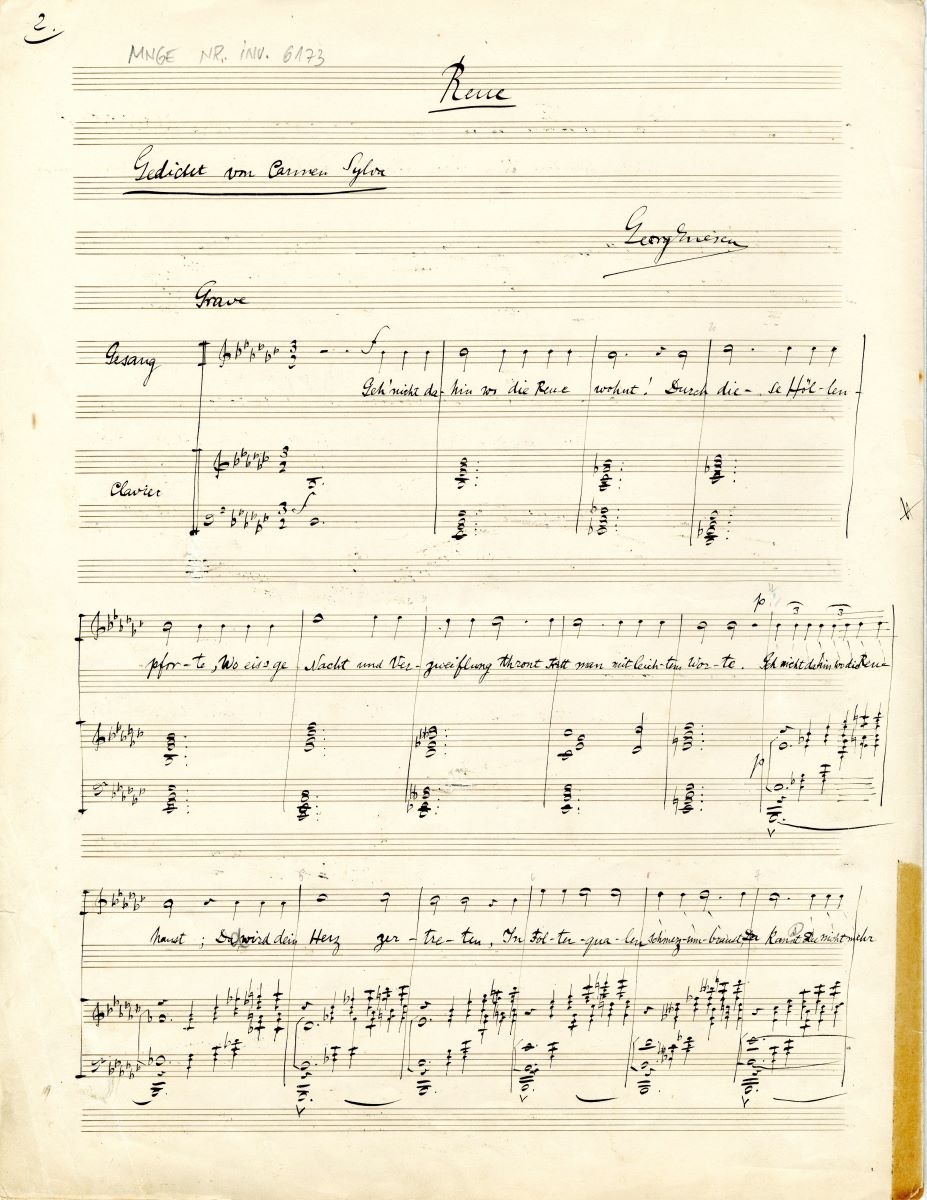 2.
MNGE NR. INV. 6173
Reue
Gedicht von Carmen Sylva
Georg Enescu
Grave
Gesang
f
Geh' nicht da- hin wo die Reue wohnt! Durch die- se Höl- len-
Clavier
f
p
pfor- te, Wo eis'ge Nacht und Ver- zweiflung thront Tritt man mit leich- tem Wor- te. Geh nicht dahin wo die Reue
3 3
p
haust; Da wird dein Herz zer- tre- ten, In Fol- ter- qua- len schmerz- um- braust Der kannst Du nicht mehr